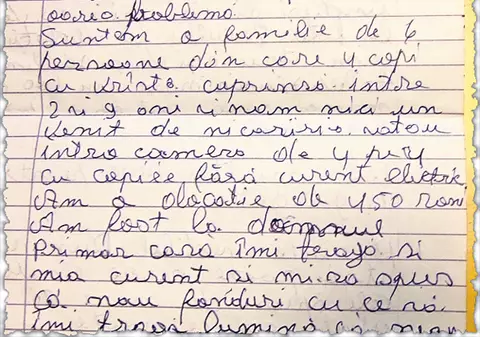 oaria problemo
Suntem o familie de 6
persoane din care 4 copi
cu vrista cuprinsa intre
2 si 9 ani si nam nici un
venit de nicairi statau
intro camera de 4 pe 4
cu copiée fără curent electric
Am o alocatie de 450 roni
Am fost la domnul
primar cara îmi traga si
mia curent si mi sa spus
că nau fonduri cu ce sa
îmi traga lumina că